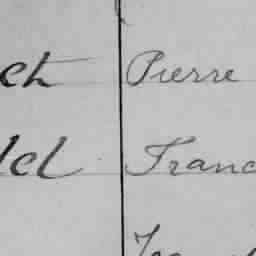 ch Pierre
del Franc